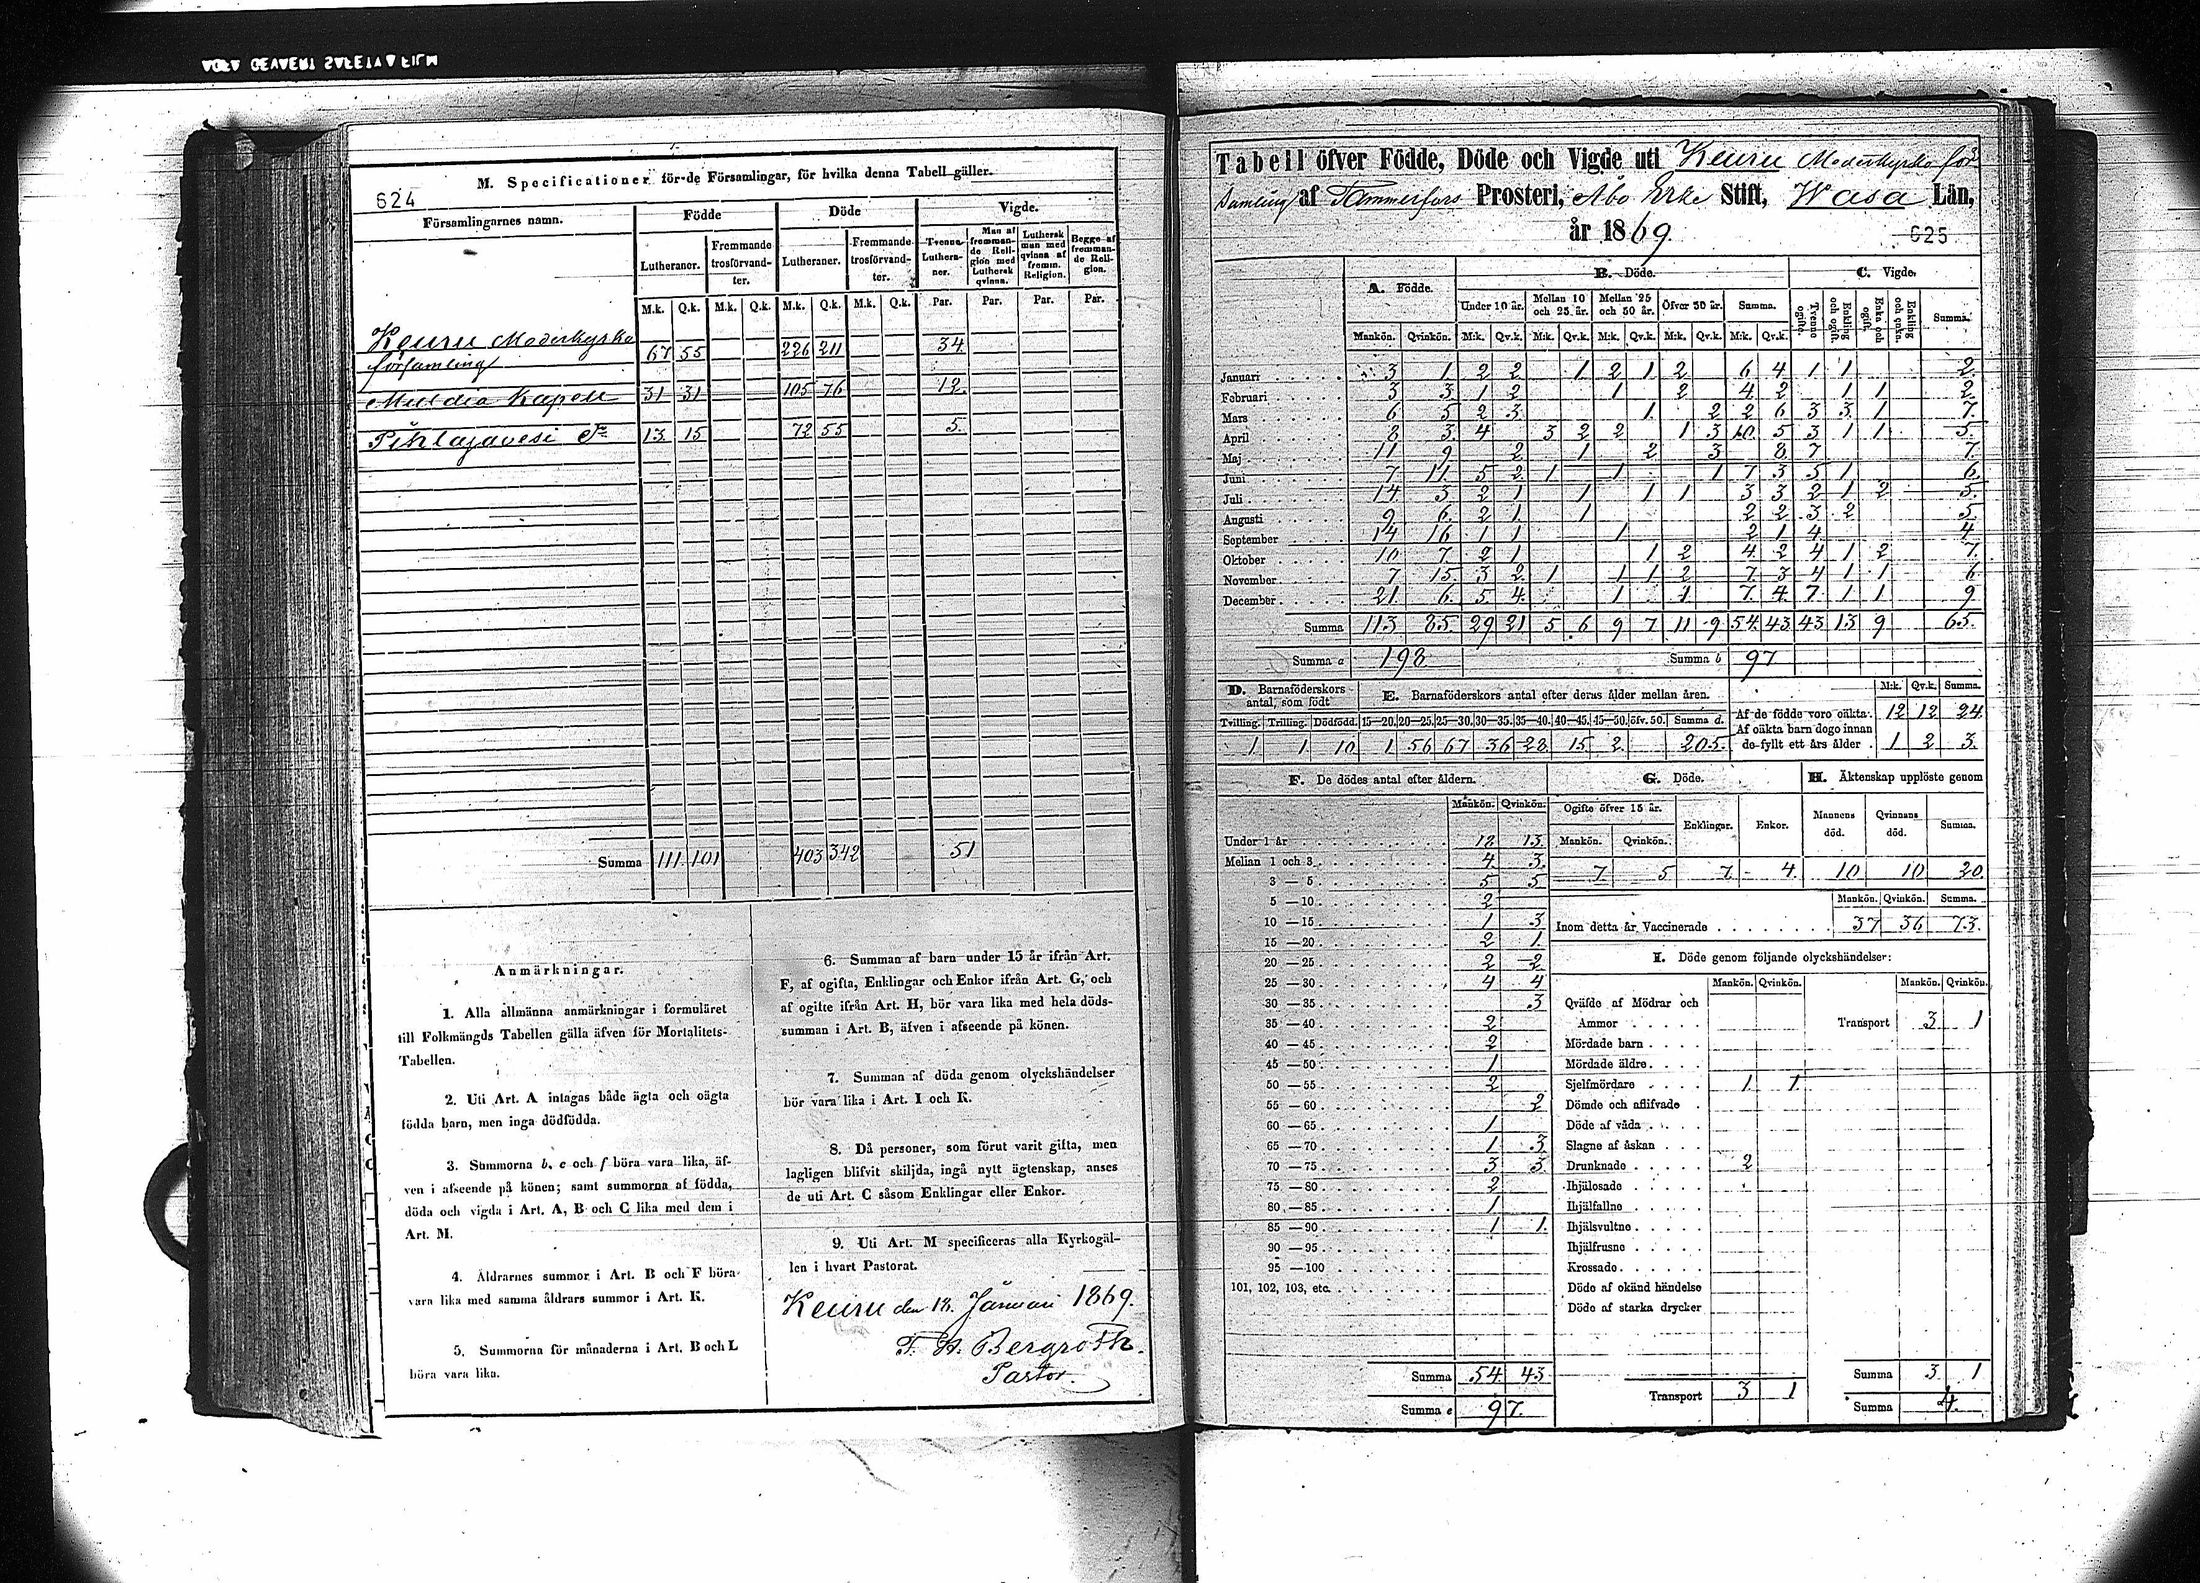 624
M. Specificationer för de Församlingar, för hvilka denna Tabell gäller.
Församlingarnes namn. Födde Döde Vigde.
Lutheraner. Fremmande trosförvandter. Lutheraner. Fremmande trosförvandter. Tvenne Lutheraner. Man af fremmande Religion med Luthersk qvinna. Luthersk man med qvinna af fremm. Religion. Begge af fremmande Religion.
M.k. Q.k. M.k. Q.k. M.k. Q.k. M.k. Q.k. Par. Par. Par. Par.
Keuru Moderkyrko
församling 67 55 226 211 34
Muldia Kapell 31 31 105 76 12
Pihlajavesi 13 15 72 55 5
Summa 111 101 403 342 51
Anmärkningar.
1. Alla allmänna anmärkningar i formuläret
till Folkmängds Tabellen gälla äfven för Mortalitets-
Tabellen.
2. Uti Art. A intagas både ägta och oägta
födda barn, men inga dödfödda.
3. Summorna b, e och f böra vara lika, äf-
ven i afseende på könen; samt summorna af födda,
döda och vigda i Art. A, B och C lika med dem i
Art. M.
4. Äldrarnes summor i Art. B och F böra
vara lika med samma åldrars summor i Art. K.
5. Summorna för månaderna i Art. B och L
böra vara lika.
6. Summan af barn under 15 år ifrån Art.
F, af ogifta, Enklingar och Enkor ifrån Art. G, och
af ogifte ifrån Art. H, bör vara lika med hela döds-
summan i Art. B, äfven i afseende på könen.
7. Summan af döda genom olyckshändelser
bör vara lika i Art. I och K.
8. Då personer, som förut varit gifta, men
lagligen blifvit skiljda, ingå nytt ägtenskap, anses
de uti Art. C såsom Enklingar eller Enkor.
9. Uti Art. M specificeras alla Kyrkogäl-
len i hvart Pastorat.
Keuru den 18 Januari 1869.
F. H. Bergroth.
Pastor.
Tabell öfver Födde, Döde och Vigde uti Keuru Moderkyrko för
samling af Tammerfors Prosteri, Åbo Erke Stift, Wasa Län,
år 1869.
625
A. Födde. B. Döde. C. Vigde.
Under 10 år. Mellan 10 och 25 år. Mellan 25 och 50 år. Öfver 50 år. Summa. Tvenne ogifte. Enkling och ogift. Enka och ogift. Enkling och enka. Summa.
Mankön. Qvinkön. M:k. Qv.k. M:k. Qv.k. M:k. Qv.k. M:k. Qv.k. M:k. Qv.k.
Januari 3 1 2 2 1 2 1 2 6 4 1 1 2
Februari 3 3 1 2 1 2 4 2 1 1 2
Mars 6 5 2 3 1 2 2 6 3 3 1 7
April 8 3 4 3 2 2 1 3 10 5 3 1 1 5
Maj 11 9 2 1 2 3 8 7 7
Juni 7 11 5 2 1 1 1 7 3 5 1 6
Juli 14 3 2 1 1 1 1 3 3 2 1 2 5
Augusti 9 6 2 1 1 2 2 3 2 5
September 14 16 1 1 1 2 1 4 4
Oktober 10 7 2 1 1 2 4 2 4 1 2 7
November 7 15 3 2 1 1 1 2 7 3 4 1 1 6
December 21 6 5 4 1 1 7 4 7 1 1 9
Summa 113 85 29 21 5 6 9 7 11 9 54 43 43 13 9 65
Summa a 198 Summa b 97
D. Barnaföderskors antal, som födt
E. Barnaföderskors antal efter deras ålder mellan åren.
M:k. Qv.k. Summa.
Tvilling. Trilling. Dödfödd. 15—20. 20—25. 25—30. 30—35. 35—40. 40—45. 45—50. öfv. 50. Summa d.
1 1 10 1 56 67 36 28 15 2 205
Af de födde voro oäkta 12 12 24
Af oäkta barn dogo innan
de fyllt ett års ålder 1 2 3
F. De dödes antal efter åldern.
Mankön. Qvinkön.
Under 1 år 18 13
Mellan 1 och 3 4 3
3 — 5 5 5
5 — 10 2
10 — 15 1 3
15 — 20 2 1
20 — 25 2 2
25 — 30 4 4
30 — 35 3
35 — 40 2
40 — 45 2
45 — 50 1
50 — 55 2
55 — 60 2
60 — 65 1
65 — 70 1 3
70 — 75 3 3
75 — 80 2
80 — 85 1
85 — 90 1 1
90 — 95
95 — 100
101, 102, 103, etc.
Summa 54 43
Summa e 97
G. Döde.
Ogifte öfver 15 år. Enklingar. Enkor.
Mankön. Qvinkön.
7 5 7 4
H. Äktenskap upplöste genom
Mannens död. Qvinnans död. Summa.
10 10 20
Mankön. Qvinkön. Summa.
Inom detta år Vaccinerade 37 36 73
I. Döde genom följande olyckshändelser:
Mankön. Qvinkön. Mankön. Qvinkön.
Qväfde af Mödrar och
Ammor Transport 3 1
Mördade barn
Mördade äldre
Sjelfmördare 1 1
Dömde och aflifvade
Döde af våda
Slagne af åskan
Drunknade 2
Ihjälosade
Ihjälfallne
Ihjälsvultne
Ihjälfrusne
Krossade
Döde af okänd händelse
Döde af starka drycker
Transport 3 1
Summa 3 1
Summa 4